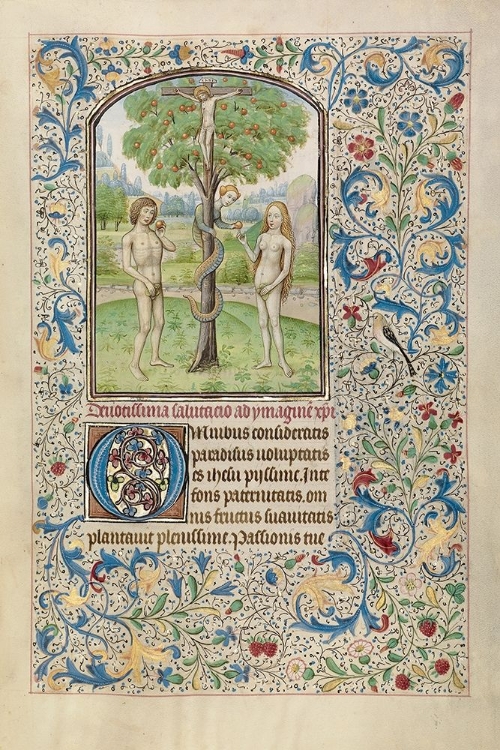 Deuotissima salutacio ad ymagine xpi
OMnibus consideratis
paradisus uoluptatis
es ihesu pijssime. Inte
fons paternitatis. om
nis fructus suauitatis
plantauit plenissime. Passionis tue